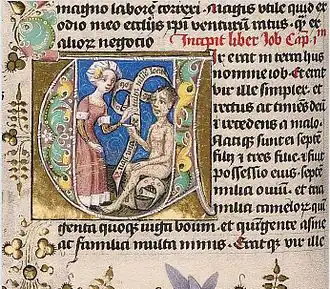 magno labore correxi. Magis vale quid ex
odio meo ecclijs rpi venturum ratus. q̄ ex
aliorum negocio Incipit liber Iob Cap. im
Vir erat in terra hus
nomine iob. et erat
vir ille simplex. et
rectus ac timens deū
et recedens a malo.
Natiqz sunt ei septē
filij et tres filie. et fuit
possessio eius. septē
milia ouiū. et tria
milia camelorz. quī
genta quoqz iuga boum. et quīgente asine
ac familia multa nimis. Eratqz vir ille